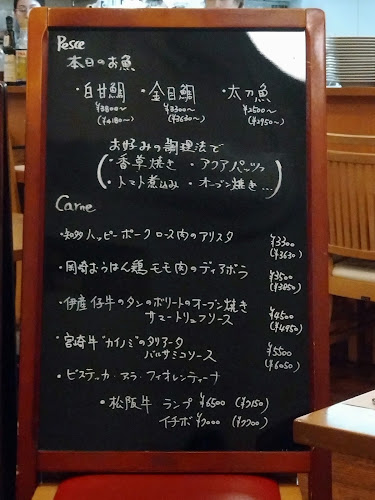 Pesce
本日のお魚
・白甘鯛 ・金目鯛 ・太刀魚
¥3800〜 ¥3300〜 ¥2500〜
(¥4180〜) (¥3630〜) (¥2750〜)
お好みの調理法で
・香草焼き ・アクアパッツァ
・トマト煮込み ・オーブン焼き...
Carne
・知多ハッピーポーク ロース肉のアリスタ ¥3300
(¥3630)
・岡崎おうはん鶏 モモ肉のディアボラ ¥3500
(¥3850)
・伊産仔牛のタンのボリートのオーブン焼き ¥4500
サマートリュフソース (¥4950)
・宮崎牛"カイノミ"のタリアータ ¥5500
バルサミコソース (¥6050)
・ビステッカ・アラ・フィオレンティーナ
・松阪牛 ランプ ¥6500 (¥7150)
イチボ ¥7000 (¥7700)